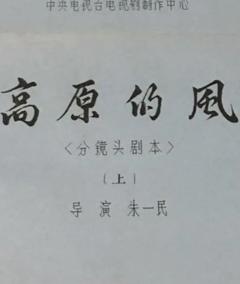 中央电视台电视剧制作中心
高原的風
<分镜头剧本>
(上)
导 演 朱一民